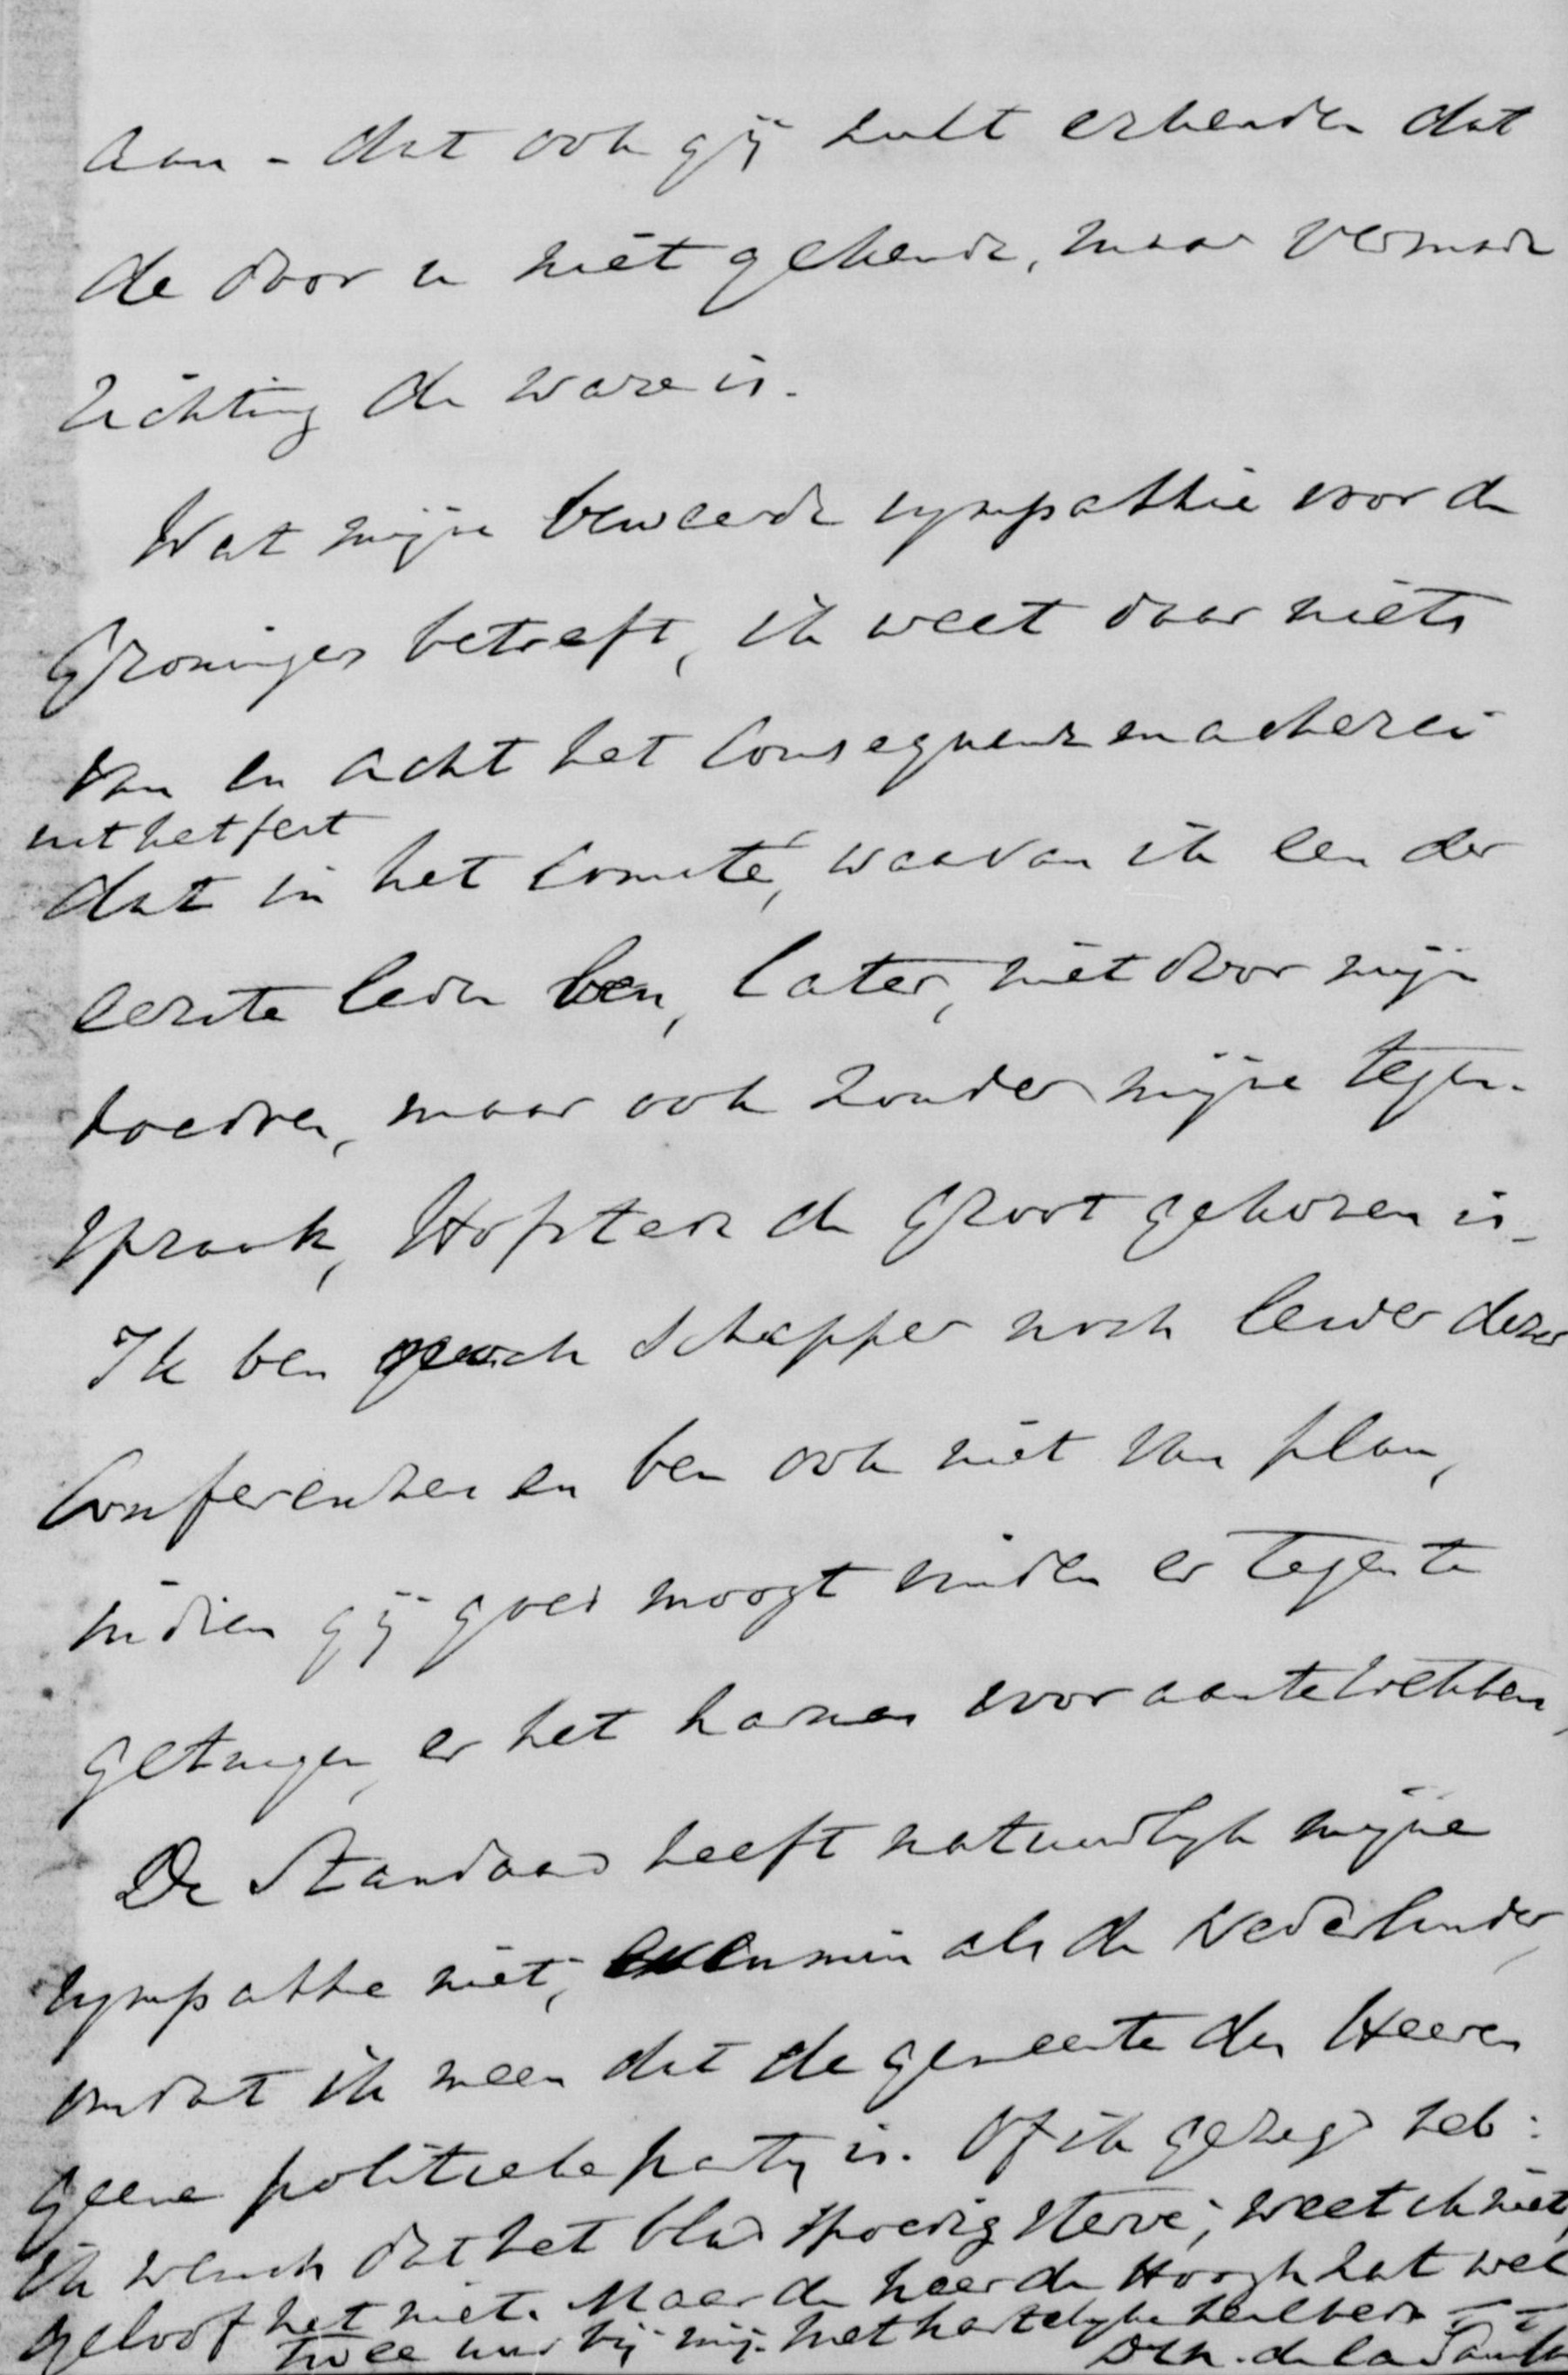 aan - dat ook gij zult erkenden dat
de door u niet gekende, maar versmade
richting de ware is.
Wat mijne beweerde sympathie voor de
Groninger betreft, ik weet daar niets
van en acht het Consequenzmacherei
uit het feit
dat in het Comité, waarvan ik een der
eerste leden ben, later, niet door mijn
toedoen, maar ook zonder mijne tegen-
spraak, Hofstede de Groot gekozen is.
Ik ben noch Schepper noch leider dezer
Conferentien en ben ook niet van plan,
indien gij goed moogt vinden er tegen te
getuigen, er het harnas voor aantetrekken,
De Standaard heeft natuurlijk mijne
sympathie niet, evenmin als de Nederlander,
omdat ik meen dat de gemeente des Heeren
geene politieke partij is. Of ik gezegd heb:
ik wensch dat het blad spoedig sterve, weet ik niet,
geloof het niet. Maar de heer de Hoogh zat wel
twee uur bij mij. met hartelijke heilbede TT
D Ch. de la Saussaye